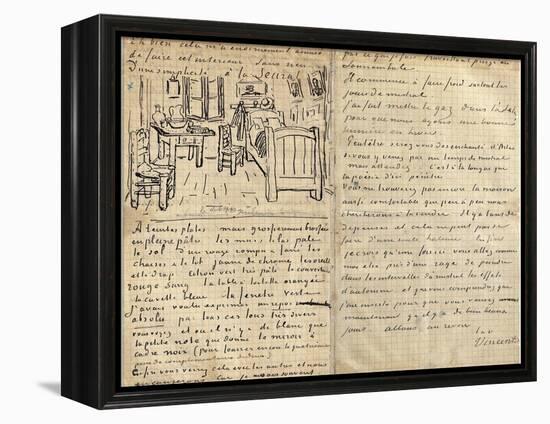 Eh bien cela m'a énormément amusé
de faire cet interieur sans rien
D'une simplicité à la Seurat
A teintes plates mais grossierement brossées
en pleine pâte les murs lilas pale
le sol d'un rouge rompu & fané les
chaises & le lit jaune de chrome les oreillers
et le drap citron vert très pâle la couverture
rouge sang la table à toilette orangée
la cuvette bleue la fenêtre verte
J'avais voulu exprimer un repos
absolu par tous ces tons très divers
vous voyez et où il n'y a de blanc que
la petite note que donne le miroir à
cadre noir (pour fourrer encore la quatrieme
paire de complementaires dedans)
Enfin vous verrez cela avec les autres et nous
en causerons car je ne sais souvent
Somnambule
Il commence à faire froid surtout les
jours de mistral
j'ai fait mettre le gaz dans l'atelier
pour que nous ayons une bonne
lumière en hiver
Peutêtre serez vous desenchanté d'Arles
si vous y venez par un temps de mistral
mais attendez C'est à la longue que
la poësie d'ici pénètre
Vous ne trouverez pas encore la maison
aussi comfortable que peu à peu nous
chercherons à la rendre Il y a tant de
depenses et cela ne peut pas se
faire d'une seule haleine Enfin
je crois qu'une fois ici vous allez comme
moi être pris d'une rage de peindre
dans les intervalles du mistral les effets
d'automne et que vous comprendrez que
j'ai insisté pour que vous veniez
maintenant qu'il y a de bien beaux
jours allons au revoir
t. à v.
Vincent